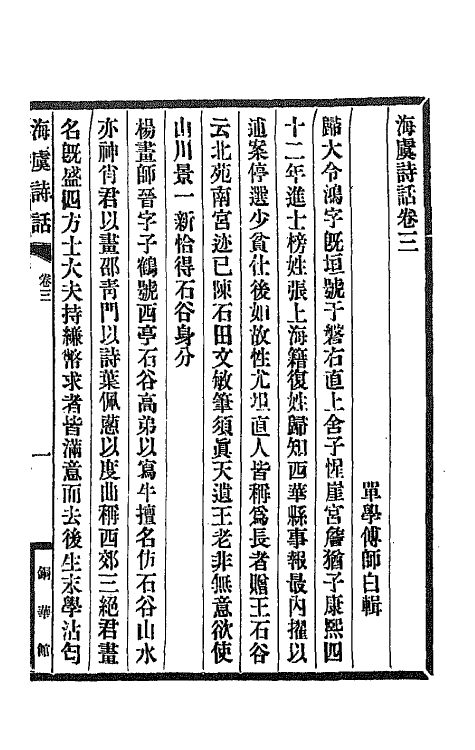 海虞詩話卷三
單學傅師白輯
歸大令鴻字旣垣號于磐右直上舍子惺崖宮詹猶子康熙四
十二年進士榜姓張上海籍復姓歸知西華縣事報最內擢以
逋案停選少貧仕後如故性尤坦直人皆稱爲長者贈王石谷
云北苑南宮迹已陳石田文敏筆須眞天遺王老非無意欲使
山川景一新恰得石谷身分
楊畫師晉字子鶴號西亭石谷高弟以寫牛擅名仿石谷山水
亦神肖君以畫邵靑門以詩葉佩蔥以度曲稱西郊三絕君畫
名旣盛四方士大夫持縑幣求者皆滿意而去後生末學沾匄
海虞詩話
卷三
一
銅華館